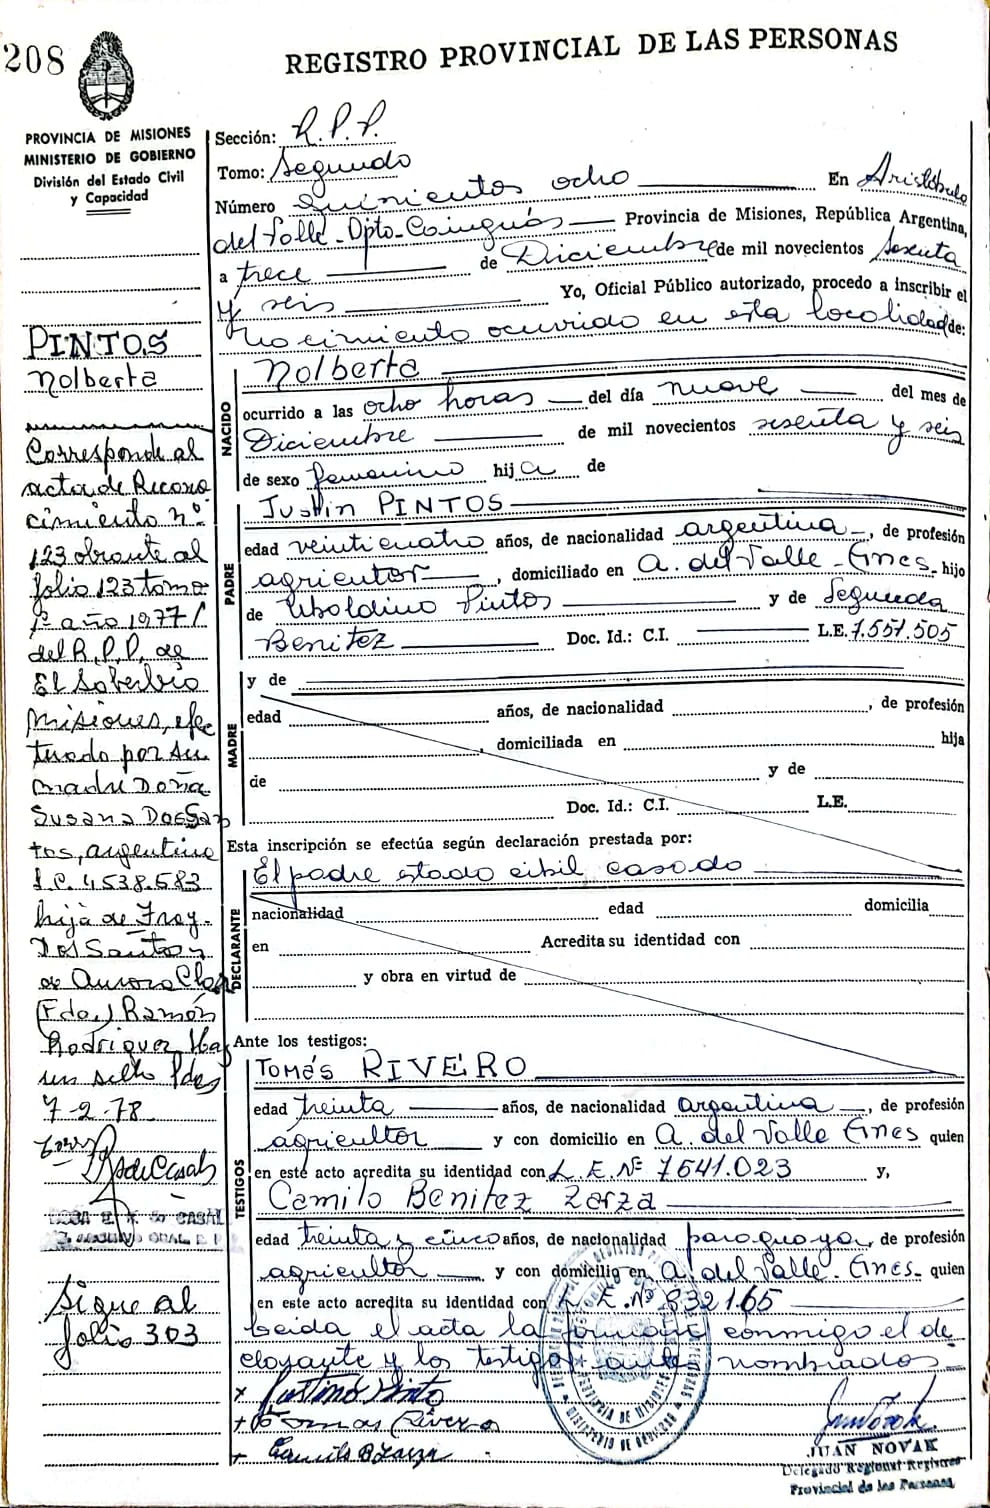 208
REGISTRO PROVINCIAL DE LAS PERSONAS
PROVINCIA DE MISIONES
MINISTERIO DE GOBIERNO
División del Estado Civil
y Capacidad
Sección: R.P.P.
Tomo: Segundo
Número quinientos ocho En Aristóbulo
del Valle - Dpto - Cainguás Provincia de Misiones, República Argentina,
a trece de Diciembre de mil novecientos sesenta
y seis Yo, Oficial Público autorizado, procedo a inscribir el
nacimiento ocurrido en esta localidad de:
PINTOS
Nolberta
Corresponde al
acta de Recono
cimiento nº
123 obrante al
folio 123 tomo
1º año 1977/
del R.P.P. de
El Soberbio
Misiones, efec
tuado por su
madre Doña
Susana Dos San
tos, argentina
L.C. 4.538.583
hija de Froy-
Dos Santos y
de Aurora
(Fdo.) Ramón
Rodriguez Hay
un sello Pdas
7-2-78
ROSA E. K. de CASAL
Sigue al
folio 303
NACIDO
Nolberta
ocurrido a las ocho horas del día nueve del mes de
Diciembre de mil novecientos sesenta y seis
de sexo femenino hija de
PADRE
Justin PINTOS
edad veinticuatro años, de nacionalidad argentina, de profesión
agricultor, domiciliado en A. del Valle - Cnes. hijo
de Ubaldino Pintos y de Segunda
Benitez Doc. Id.: C.I. L.E. 7.551.505
MADRE
y de
edad años, de nacionalidad , de profesión
, domiciliada en hija
de y de
Doc. Id.: C.I. L.E.
Esta inscripción se efectúa según declaración prestada por:
DECLARANTE
El padre estado cibil casado
nacionalidad edad domicilia
en Acredita su identidad con
y obra en virtud de
Ante los testigos:
TESTIGOS
Tomás RIVERO
edad treinta años, de nacionalidad argentina, de profesión
agricultor y con domicilio en A. del Valle Cnes quien
en este acto acredita su identidad con L.E. Nº 7641.023 y,
Camilo Benitez Zarza
edad treinta y cinco años, de nacionalidad paraguaya, de profesión
agricultor y con domicilio en A. del Valle - Cnes - quien
en este acto acredita su identidad con E. Nº 832165
Leida el acta la firman conmigo el de
clarante y los testigos antes nombrados
x Justino Pinto
+ Tomas Rivero
+ Camilo B Zarza
JUAN NOVAK
Delegado Regional Registro
Provincial de las Personas